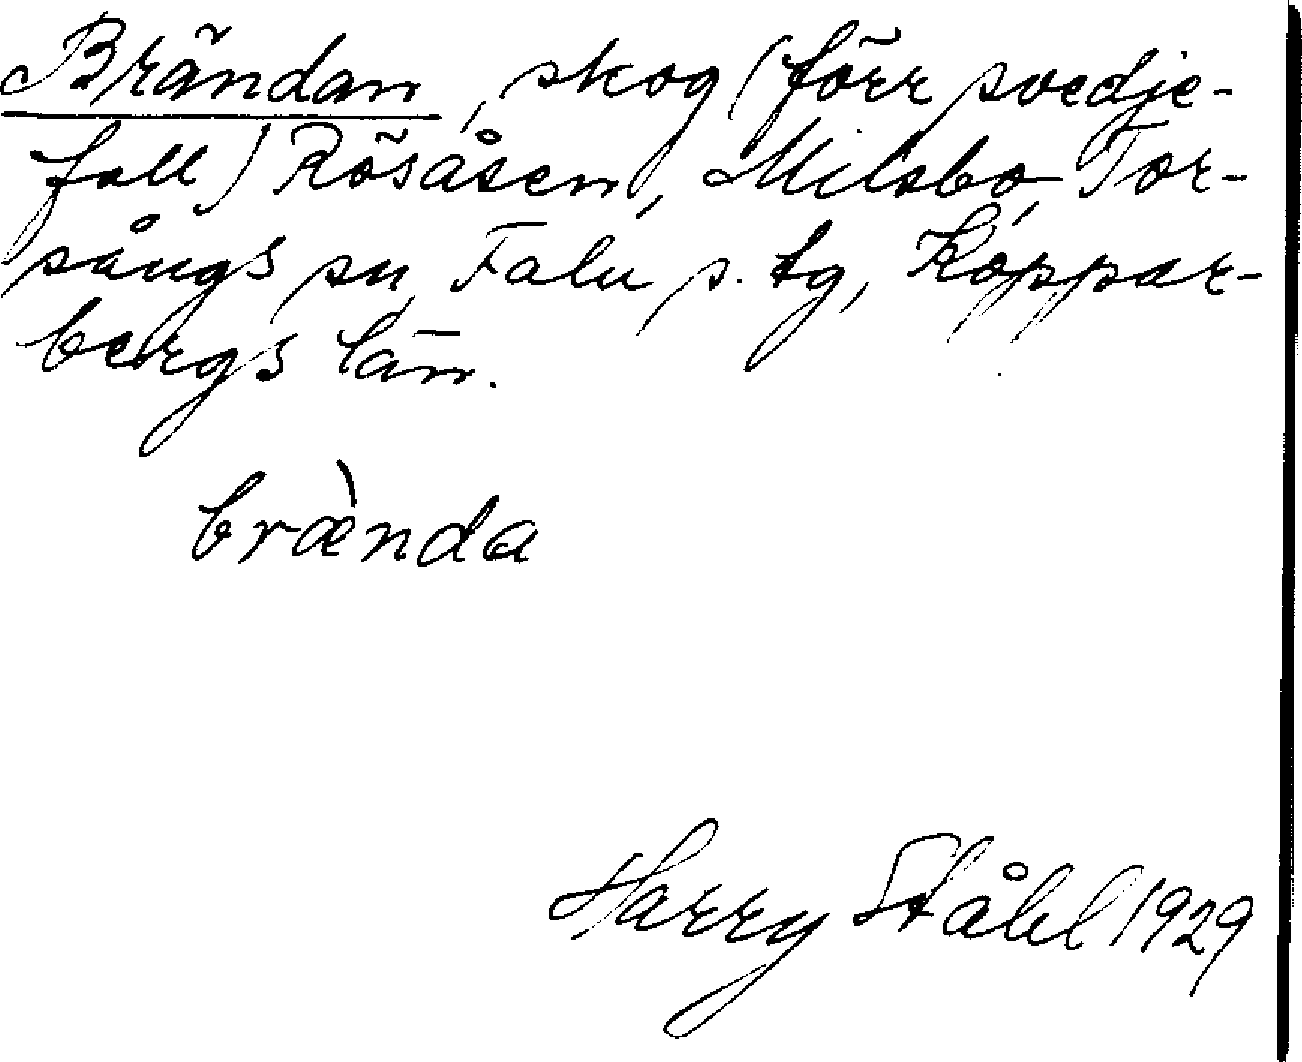 Brändan, skog (förr svedje-
fall) Rösåsen, Milsbo, Tor-
sångs sn, Falu s. tg, Koppar-
bergs län.
bræ̀nda
Harry Ståhl 1929